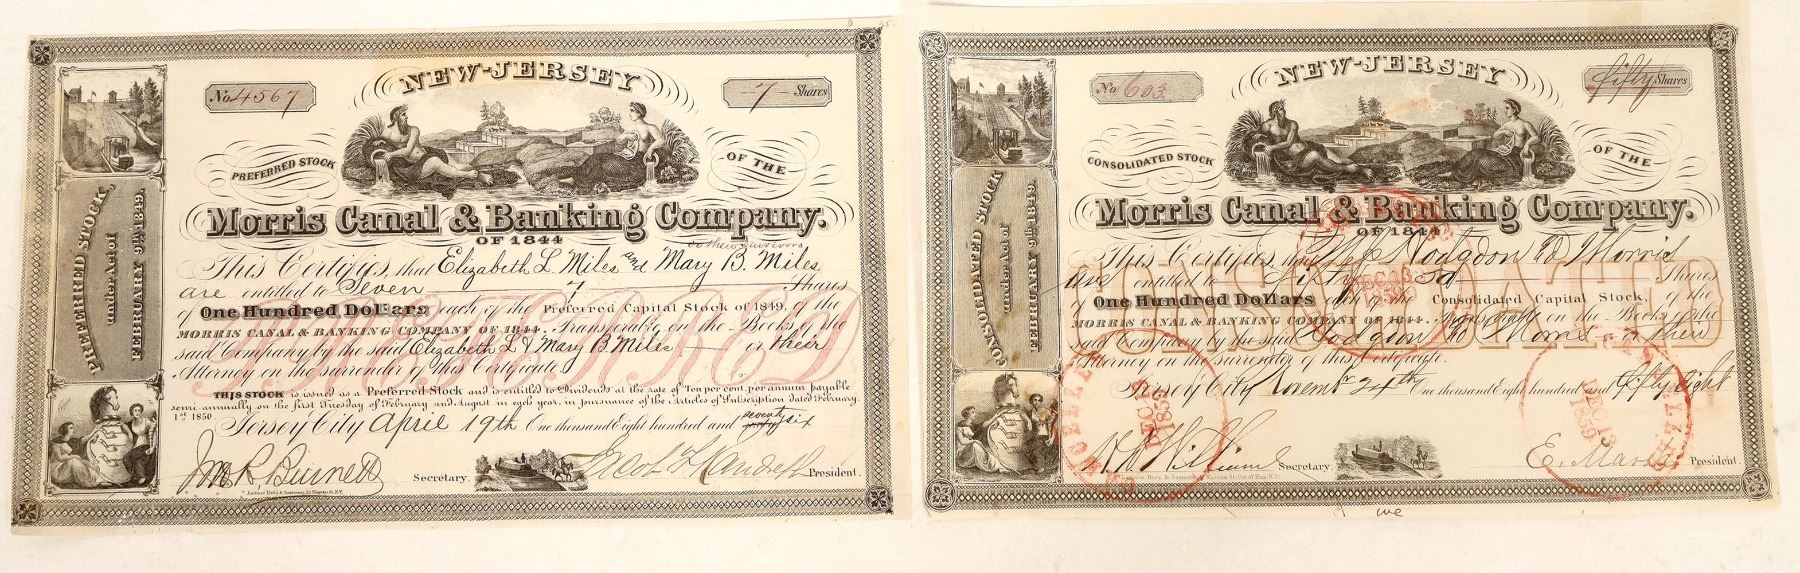 No 4567
NEW-JERSEY
7 Shares
PREFERRED STOCK OF THE
Morris Canal & Banking Company.
OF 1844
or their survivors
This Certifies, that Elizabeth L. Miles and Mary B. Miles
are entitled to Seven 7 Shares
of One Hundred Dollars each of the Preferred Capital Stock of 1849, of the
MORRIS CANAL & BANKING COMPANY OF 1844. Transferable on the Books of the
said Company by the said Elizabeth L & Mary B Miles or their
Attorney on the surrender of this Certificate.
THIS STOCK is issued as a Preferred Stock and is entitled to Dividends at the rate of Ten per cent. per annum payable
semi annually on the first Tuesday of February and August in each year, in pursuance of the Articles of Subscription dated February
1st 1850.
Jersey City April 19th One thousand Eight hundred and seventy six
Jno R Burnett Secretary. President.
PREFERRED STOCK
under Act of
FEBRUARY 9th 1849.
PREFERRED
No 603
NEW-JERSEY
fifty Shares
CONSOLIDATED STOCK OF THE
Morris Canal & Banking Company.
OF 1844
This Certifies, that Hodgdon & Morris
are entitled to Fifty 50 Shares
of One Hundred Dollars each of the Consolidated Capital Stock, of the
MORRIS CANAL & BANKING COMPANY OF 1844. Transferable on the Books of the
said Company by the said Hodgdon & Morris or their
Attorney on the surrender of this Certificate.
Jersey City Novembr 24th One thousand Eight hundred and fifty eight
Secretary. President.
CONSOLIDATED STOCK
under Act of
FEBRUARY 9th 1849.
CONSOLIDATED
CANCELLED
DEC 13
1859
CANCELLED
DEC 13
1859
DEC 13
1859